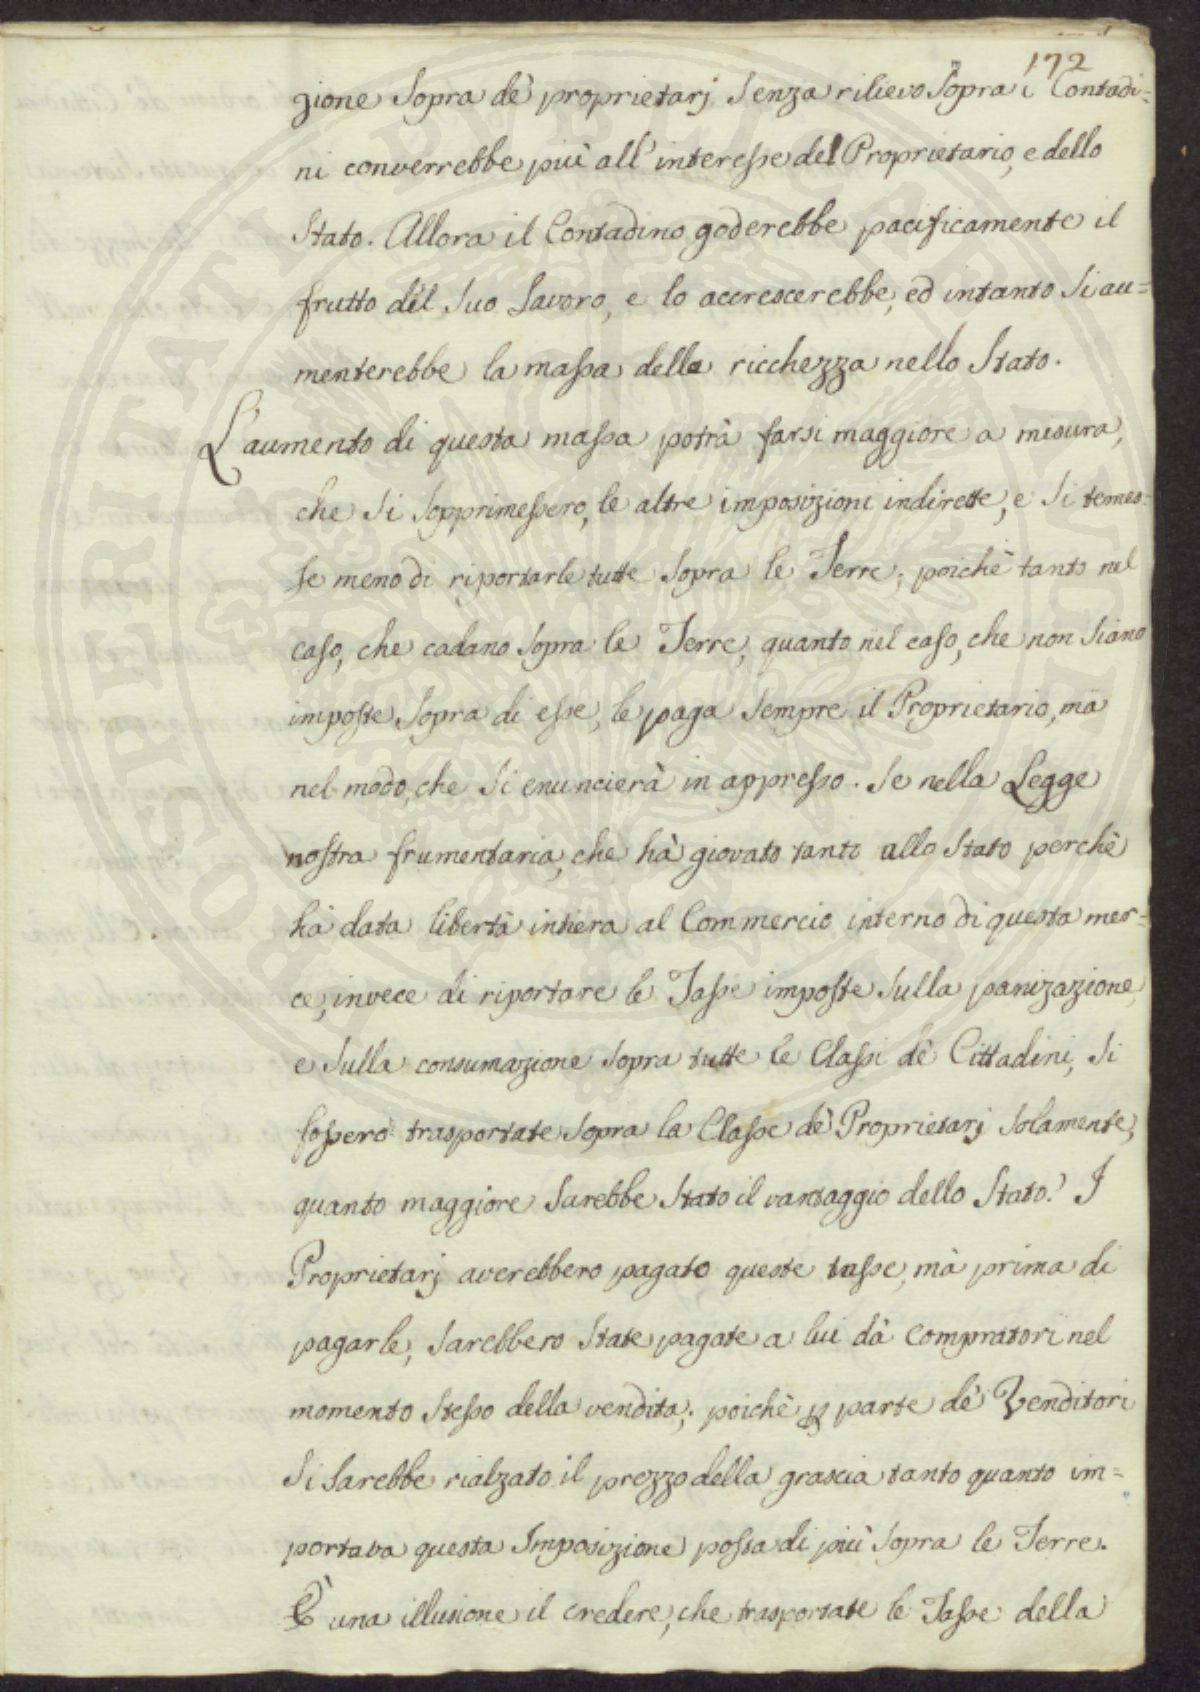 172
gione sopra dè proprietarj senza rilievo sopra i Contadi=
ni converrebbe più all'interesse del Proprietario, e dello
Stato. Allora il Contadino goderebbe pacificamente il
frutto del suo lavoro, e lo accrescerebbe, ed intanto si au=
menterebbe la massa della ricchezza nello Stato.
L'aumento di questa massa potrà farsi maggiore a misura,
che si sopprimessero, le altre imposizioni indirette, e si temes=
se meno di riportarle tutte sopra le Terre; poichè tanto nel
caso, che cadano sopra le Terre, quanto nel caso, che non siano
imposte sopra di esse, le paga sempre il Proprietario, mà
nel modo, che si enuncierà in appresso. Se nella Legge
nostra frumentaria, che hà giovato tanto allo Stato perchè
hà data libertà intiera al Commercio interno di questa mer=
ce, invece di riportare le Tasse imposte sulla panizazione,
e sulla consumazione sopra tutte le Classi dè Cittadini, si
fossero trasportate sopra la Classe dè Proprietarj solamente,
quanto maggiore sarebbe stato il vantaggio dello Stato? I
Proprietarj averebbero pagato queste tasse, mà prima di
pagarle, sarebbero state pagate a lui dà compratori nel
momento stesso della vendita; poichè p parte dè Venditori
si sarebbe rialzato il prezzo della grascia tanto quanto im=
portava questa Imposizione posta di più sopra le Terre.
È una illusione il credere, che trasportate le Tasse della
PROSPERITATI PUBLICAE AUGENDAE